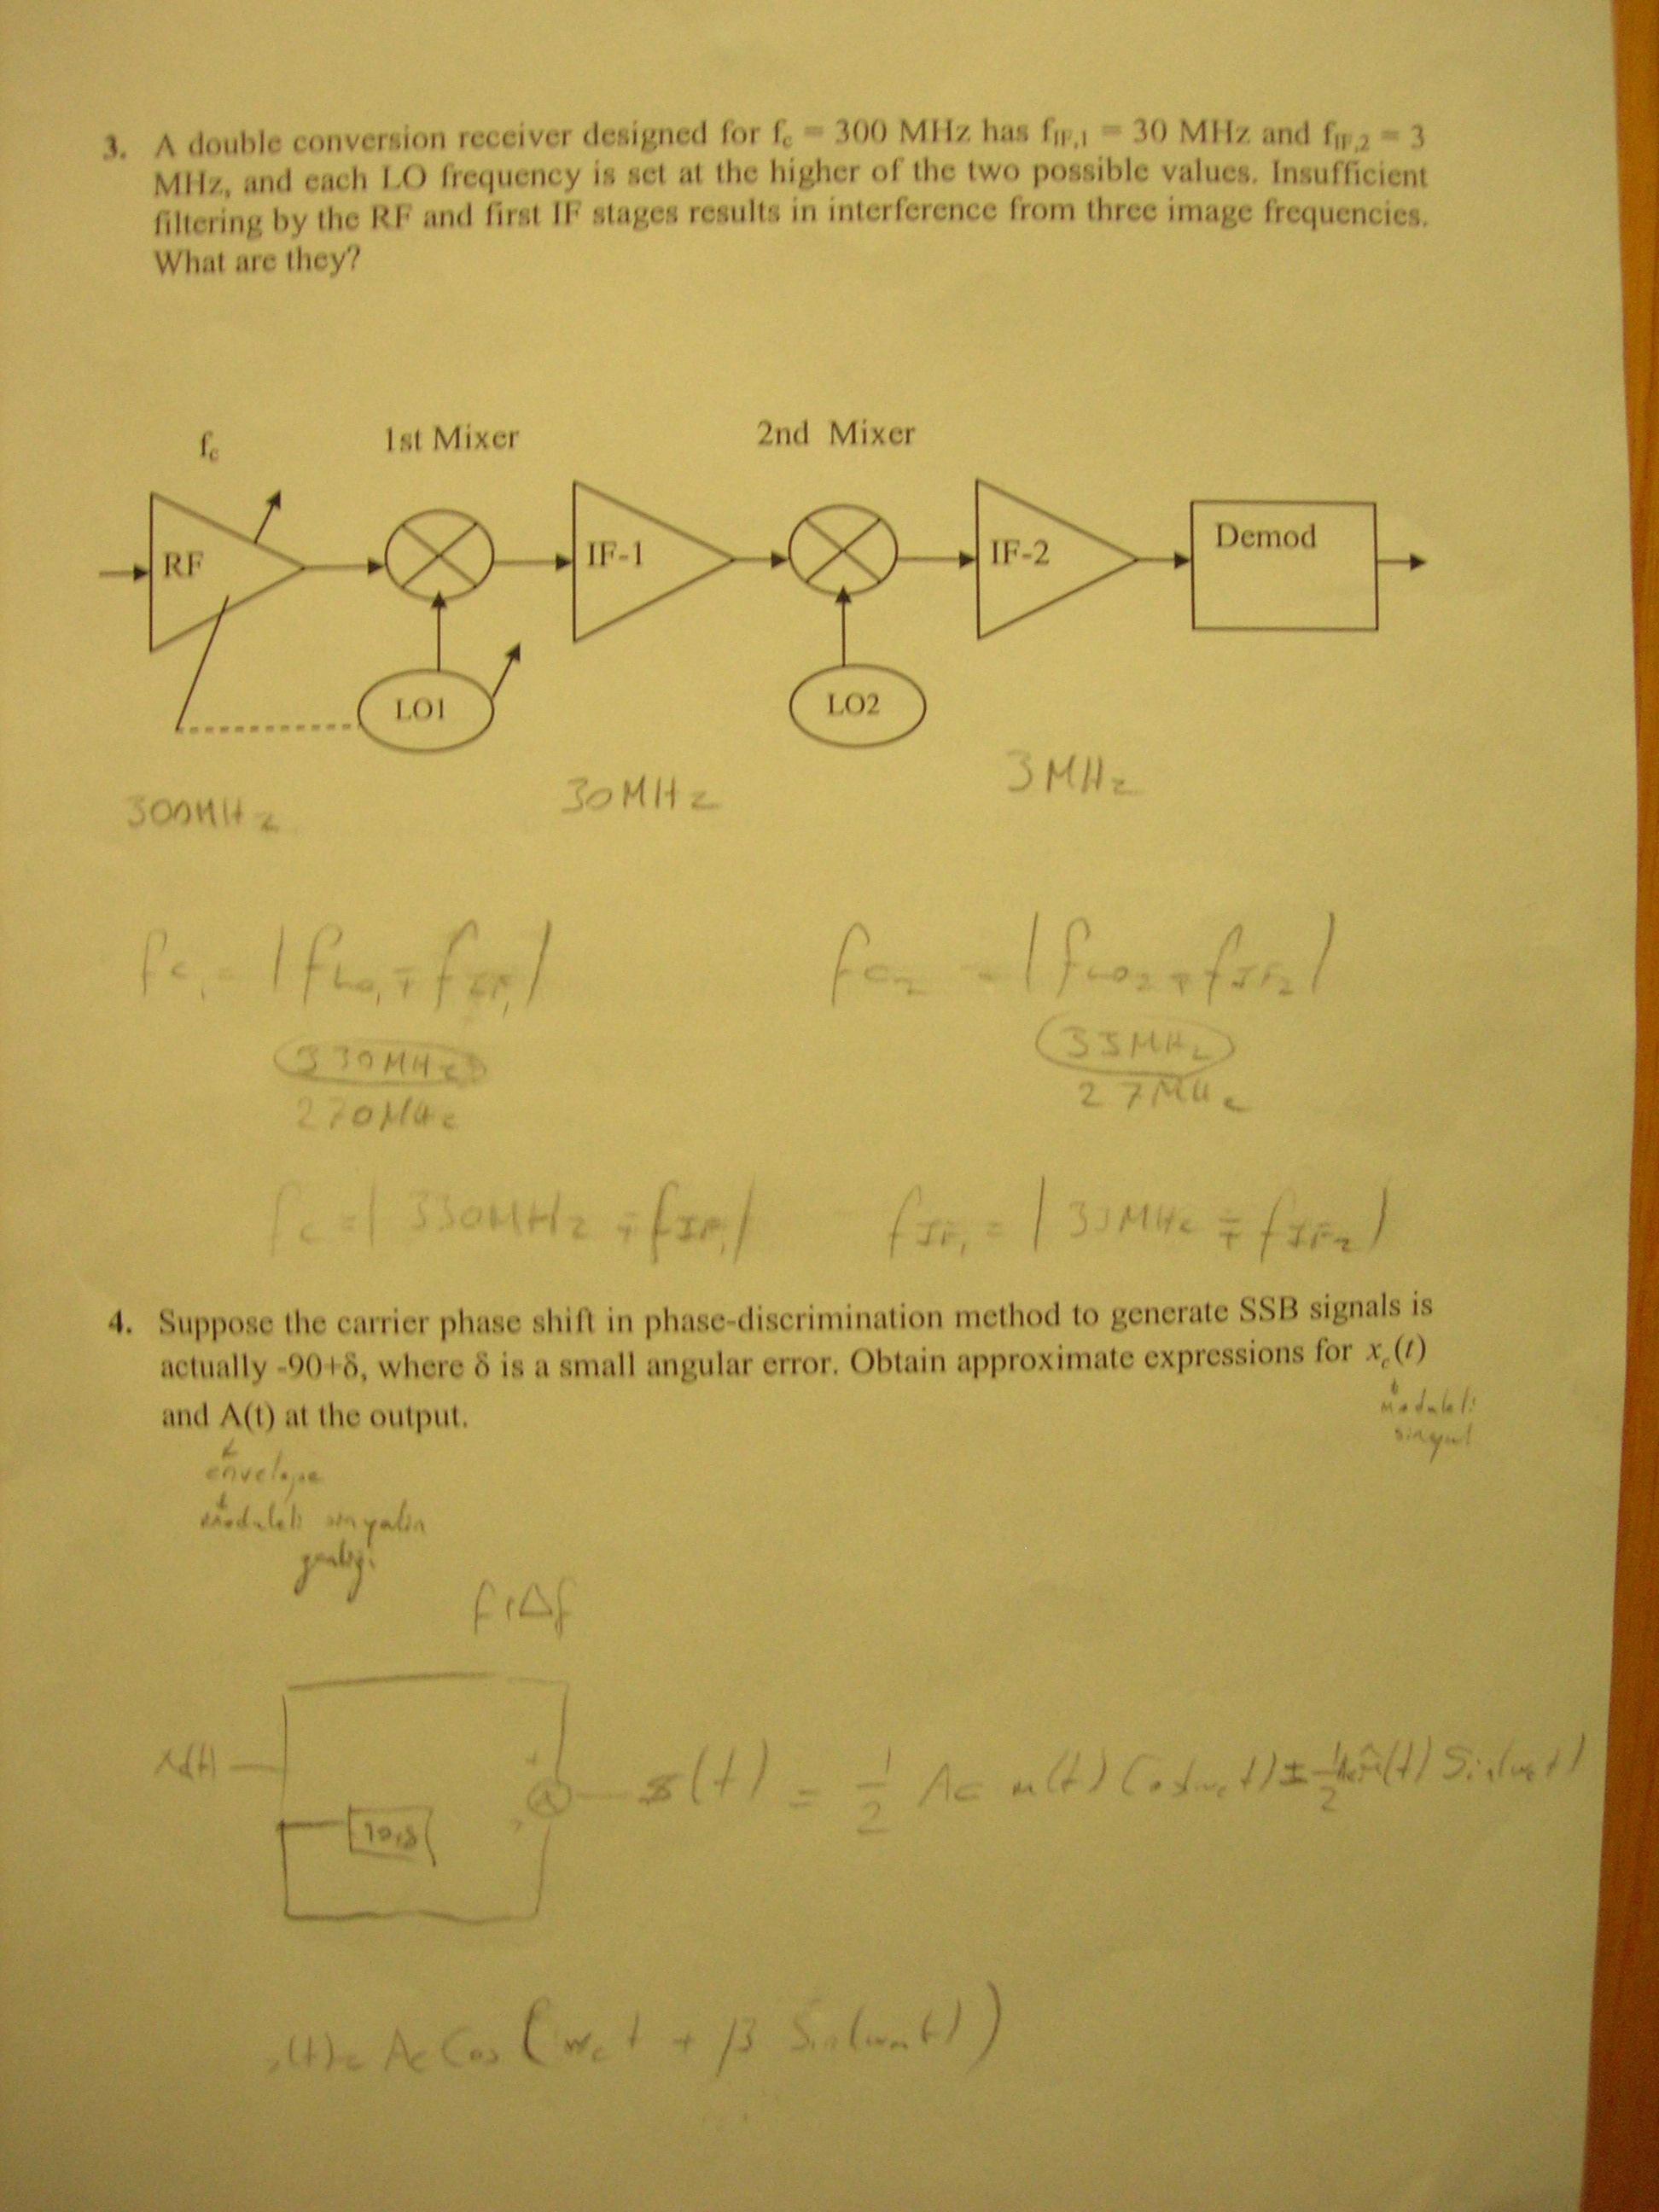 3. A double conversion receiver designed for fc = 300 MHz has fIF,1 = 30 MHz and fIF,2 = 3
MHz, and each LO frequency is set at the higher of the two possible values. Insufficient
filtering by the RF and first IF stages results in interference from three image frequencies.
What are they?
fc 1st Mixer 2nd Mixer
RF IF-1 IF-2 Demod
LO1 LO2
300MHz 30MHz 3MHz
fc1 = |fLO1 ∓ fIF1| fc2 = |fLO2 ∓ fIF2|
330MHz 33MHz
270MHz 27MHz
fc = | 330MHz ∓ fIF1| fIF1 = | 33MHz ∓ fIF2|
4. Suppose the carrier phase shift in phase-discrimination method to generate SSB signals is
actually -90+δ, where δ is a small angular error. Obtain approximate expressions for xc(t)
and A(t) at the output.
modüleli
envelope
modüleli sinyalin
s(t) = 1/2 Ac m(t) Cos(wct) ± 1/2 Ac m̂(t) Sin(wct)
Ac Cos (wct + β Sin(wmt))